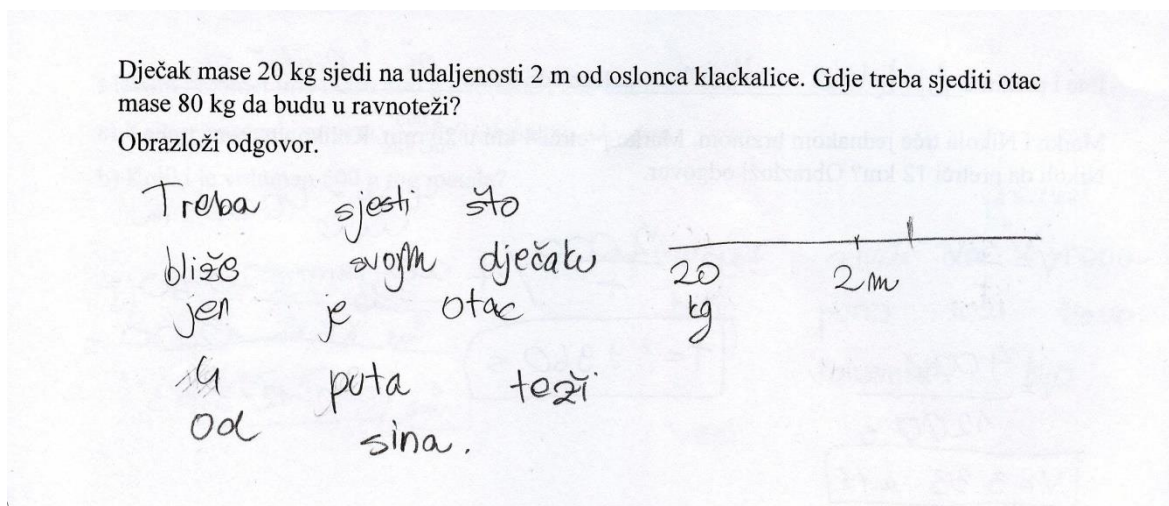 Dječak mase 20 kg sjedi na udaljenosti 2 m od oslonca klackalice. Gdje treba sjediti otac
mase 80 kg da budu u ravnoteži?
Obrazloži odgovor.
Treba sjesti što
bliže svojm dječaku
jer je otac
4 puta teži
od sina.
20 2m
kg